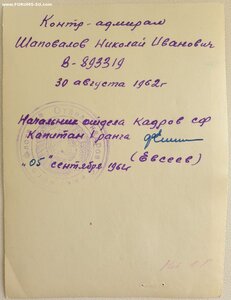 www.FORUMS-SU.com
Контр-адмирал
Шаповалов Николай Иванович
В-893319
30 августа 1962г
Начальник отдела кадров СФ
Капитан I ранга
(Евсеев)
„05" сентября 1962г